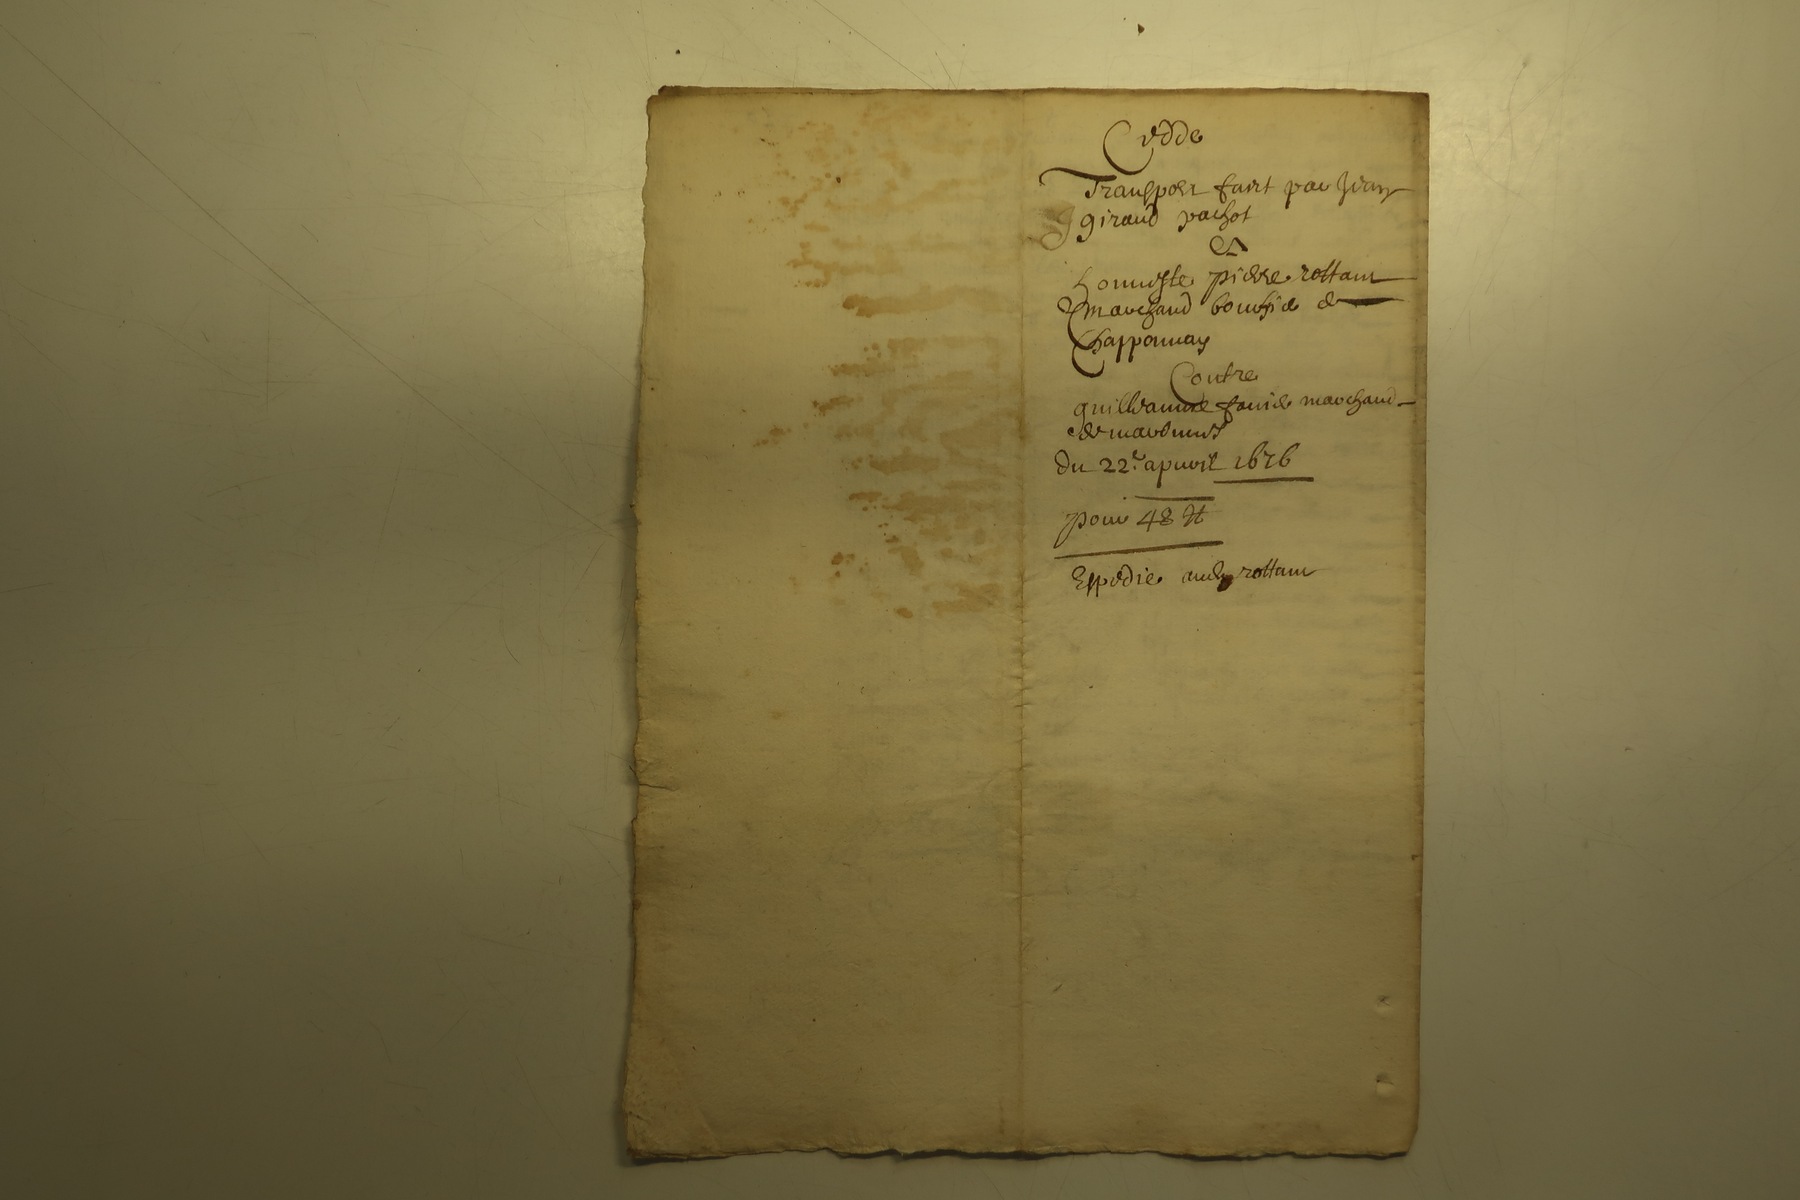 Cedde
Transport faict par Jean
giraud pachot
A
honneste pierre rottain
marchand bouchie de
Chapponnay
Contre
guilleaume marchand
de
du 22e apuril 1676
pour 48 ₶
Expedie aud rottain